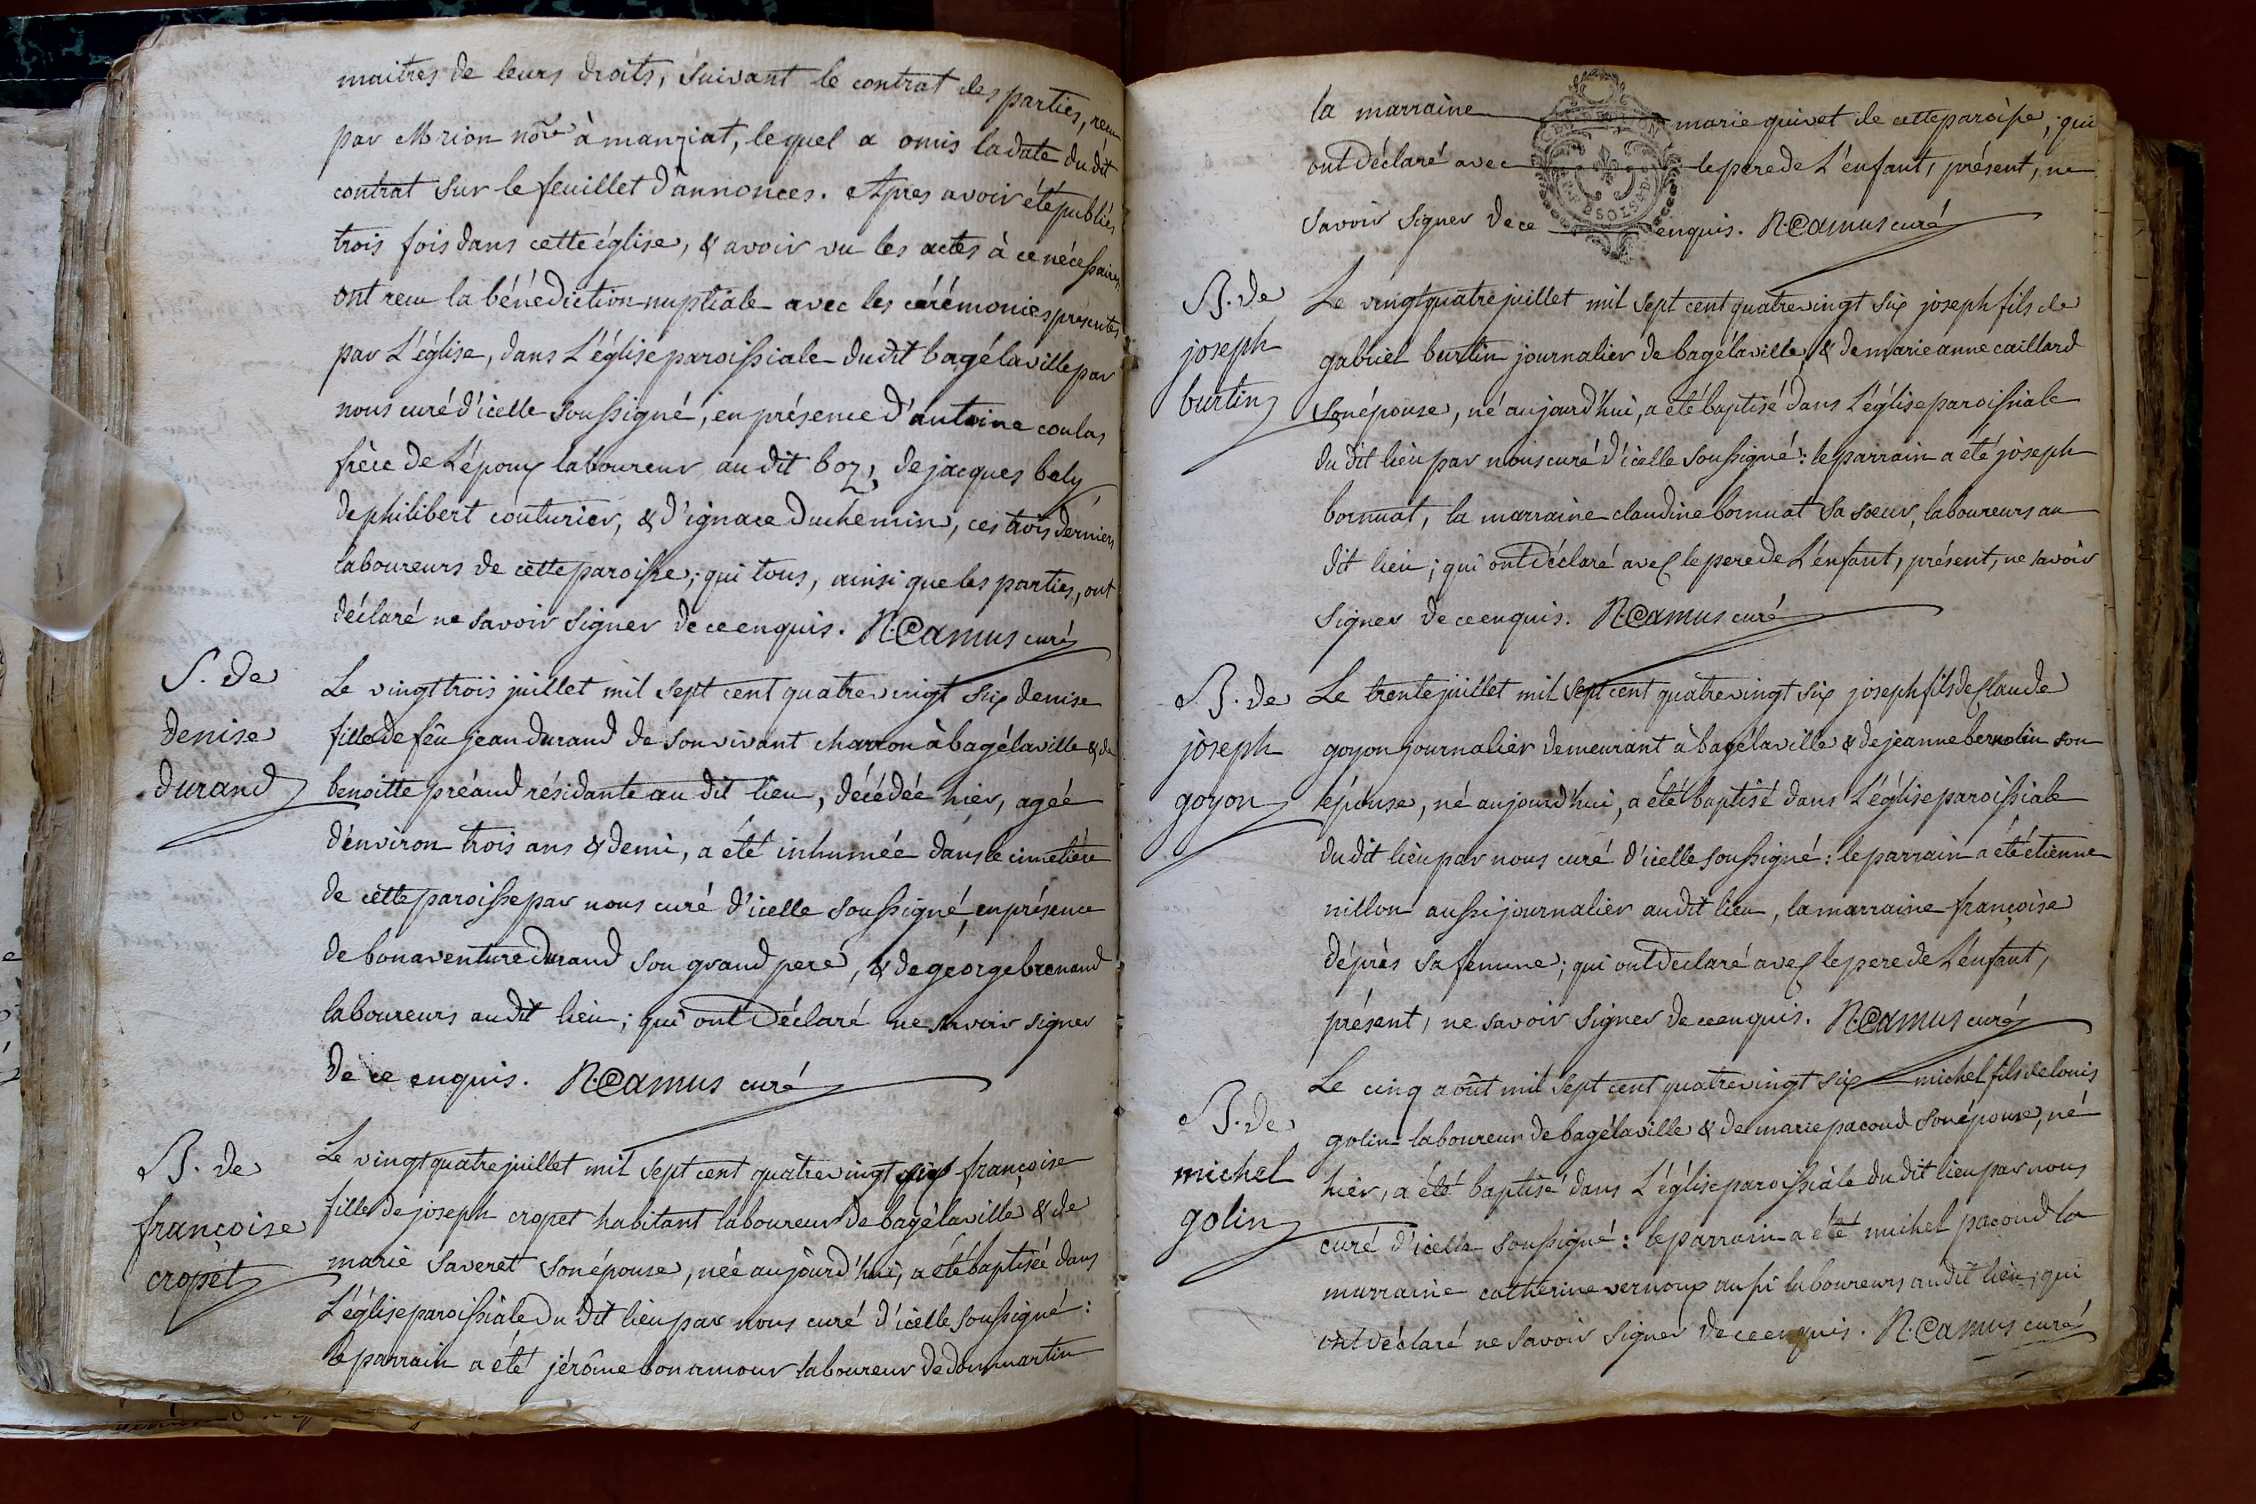 maitres de leurs droits, suivant le contrat des parties, recu
par Mrion nore à manziat, lequel a omis la date du dit
contrat sur le feuillet d'annonces. Apres avoir été publiés
trois fois dans cette église, & avoir vu les actes à ce nécessaires
ont recu la bénédiction nuptiale avec les cérémonies présentes
par L'église, dans L'église paroissiale dudit bagélaville par
nous curé d'icelle soussigné, en présence d'antoine coulas
frère de L'époux laboureur au dit boz, de jacques bely
de philibert couturier, & d'ignace duchemin, ces trois derniers
laboureurs de cette paroisse; qui tous, ainsi que les parties, ont
déclaré ne savoir signer de ce enquis. N. Camus curé
S. de
denise
durand
Le vingt trois juillet mil sept cent quatre vingt six denise
fille de feu jean durand de son vivant charron à bagélaville & de
benoitte préaud résidante au dit lieu, décédée hier, agée
d'environ trois ans & demi, a été inhumée dans le cimetière
de cette paroisse par nous curé d'icelle soussigné, en présence
de bonaventure durand son grand pere, & de george brenand
laboureurs audit lieu; qui ont déclaré ne savoir signer
de ce enquis. N. Camus curé
B. de
françoise
cropet
Le vingt quatre juillet mil sept cent quatre vingt six françoise
fille de joseph cropet habitant laboureur de bagélaville & de
marie saveret son épouse, née aujourd'hui, a été baptisée dans
L'église paroissiale du dit lieu par nous curé d'icelle soussigné:
le parrain a été jérôme bonamour laboureur de dommartin
la marraine marie quivet de cette paroisse, qui
ont déclaré avec le pere de L'enfant, présent, ne
savoir signer de ce enquis. N. Camus curé
B. de
joseph
burtin
Le vingt quatre juillet mil sept cent quatre vingt six joseph fils de
gabriel burtin journalier de bagélaville, & de marie anne caillard
son épouse, né aujourd'hui, a été baptisé dans L'église paroissiale
du dit lieu par nous curé d'icelle soussigné: le parrain a été joseph
bornuat, la marraine claudine bornuat sa soeur, laboureurs au
dit lieu; qui ont déclaré avec le pere de L'enfant, présent, ne savoir
signer de ce enquis. N. Camus curé
B. de
joseph
goyon
Le trente juillet mil sept cent quatre vingt six joseph fils de Claude
goyon journalier demeurant à bagélaville & de jeanne bernolin son
épouse, né aujourd'hui, a été baptisé dans L'église paroissiale
du dit lieu par nous curé d'icelle soussigné: le parrain a été étienne
nillon aussi journalier audit lieu, la marraine françoise
désprès sa femme; qui ont déclaré avec le pere de L'enfant,
présent, ne savoir signer de ce enquis. N. Camus curé
B. de
michel
golin
Le cinq août mil sept cent quatre vingt six michel fils de louis
golin laboureur de bagélaville & de marie pacoud son épouse, né
hier, a été baptisé dans L'église paroissiale du dit lieu par nous
curé d'icelle soussigné: le parrain a été michel pacoud la
marraine catherine vernoux aussi laboureurs audit lieu; qui
ont déclaré ne savoir signer de ce enquis. N. Camus curé